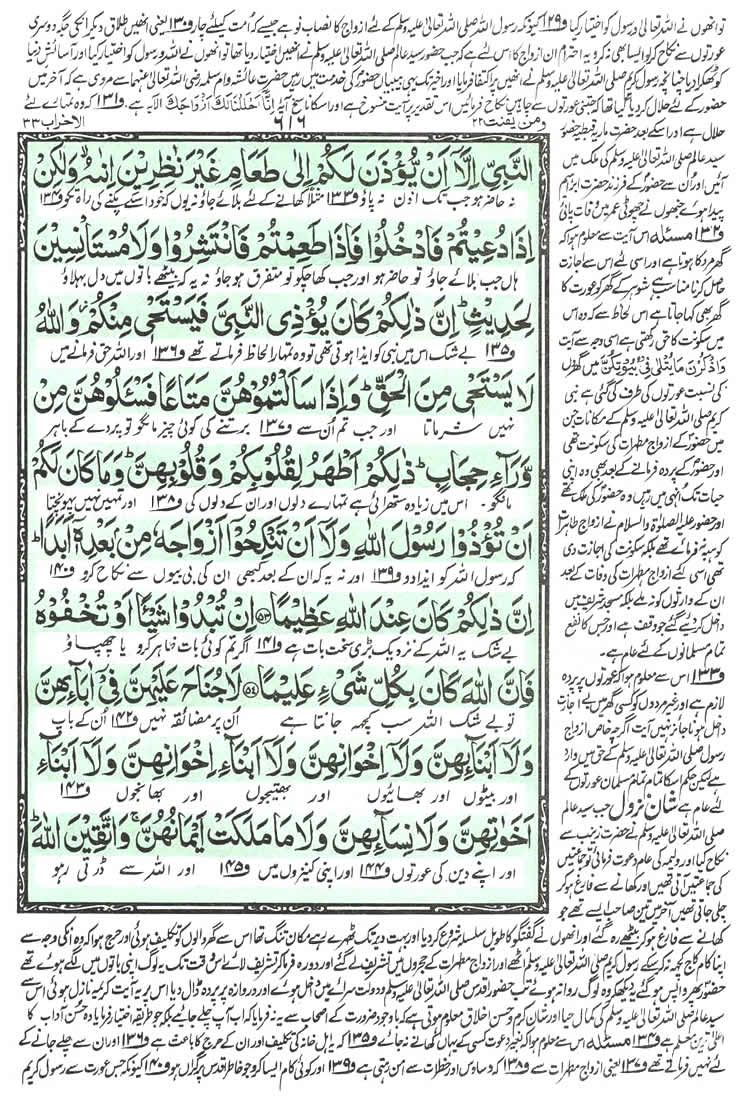 تو انھوں نے اللہ تعالیٰ و رسول کو اختیار کیا و۱۲۹ کیونکہ رسول اللہ صلی اللہ تعالیٰ علیہ وسلم کے لئے ازواج کا نصاب نو ہے جیسے کہ اُمت کیلئے چار و۱۳۰ یعنی انھیں طلاق دیکر انکی جگہ دوسری
عورتوں سے نکاح کرلو ایسا بھی نہ کرو یہ احترام ان ازواج کا اس لئے ہے کہ جب حضور سید عالم صلی اللہ تعالیٰ علیہ وسلم نے انھیں اختیار دیا تھا تو انھوں نے اللہ و رسول کو اختیار کیا اور آسائش دنیا
کو ٹھکرا دیا چنانچہ رسول کریم صلی اللہ تعالیٰ علیہ وسلم نے انھیں پر اکتفا فرمایا اور اخیر تک یہی بیبیاں حضور کی خدمت میں رہیں حضرت عائشہ و ام سلمہ رضی اللہ تعالیٰ عنہما سے مروی ہے کہ آخر میں
حضور کے لئے حلال کردیا گیا تھا کہ جتنی عورتوں سے چاہیں نکاح فرمائیں اس تقدیر پر آیت منسوخ ہے اور اسکا ناسخ آیۂ اِنَّآ اَحْلَلْنَا لَكَ اَزْوَاجَكَ الآیہ ہے و۱۳۱ کہ وہ تمہارے لئے
ومن یقنت ۲۲
۶۱۶
الاحزاب ۳۳
النَّبِیِّ اِلَّاۤ اَنْ یُّؤْذَنَ لَكُمْ اِلٰى طَعَامٍ غَیْرَ نٰظِرِیْنَ اِنٰىهُ وَ لٰكِنْ
نہ حاضر ہو جب تک اذن نہ پاؤ و۱۳۳ مثلاً کھانے کے لئے بلائے جاؤ نہ یوں کہ خود اسکے پکنے کی راہ تکو و۱۳۴
اِذَا دُعِیْتُمْ فَادْخُلُوْا فَاِذَا طَعِمْتُمْ فَانْتَشِرُوْا وَ لَا مُسْتَاْنِسِیْنَ
ہاں جب بلائے جاؤ تو حاضر ہو اور جب کھا چکو تو متفرق ہو جاؤ نہ یہ کہ بیٹھے باتوں میں دل بہلاؤ
لِحَدِیْثٍ اِنَّ ذٰلِكُمْ كَانَ یُؤْذِی النَّبِیَّ فَیَسْتَحْیٖ مِنْكُمْ وَ اللّٰهُ
و۱۳۵ بے شک اس میں نبی کو ایذا ہوتی تھی تو وہ تمہارا لحاظ فرماتے تھے و۱۳۶ اور اللہ حق فرمانے میں
لَا یَسْتَحْیٖ مِنَ الْحَقِّ وَ اِذَا سَاَلْتُمُوْهُنَّ مَتَاعًا فَسْـَٔلُوْهُنَّ مِنْ
نہیں شرماتا اور جب تم اُن سے و۱۳۷ برتنے کی کوئی چیز مانگو تو پردے کے باہر
وَّرَآءِ حِجَابٍ ذٰلِكُمْ اَطْهَرُ لِقُلُوْبِكُمْ وَ قُلُوْبِهِنَّ وَ مَا كَانَ لَكُمْ
مانگو - اس میں زیادہ ستھرائی ہے تمہارے دلوں اور ان کے دلوں کی و۱۳۸ اور تمہیں نہیں پہونچتا
اَنْ تُؤْذُوْا رَسُوْلَ اللّٰهِ وَ لَاۤ اَنْ تَنْكِحُوْۤا اَزْوَاجَهٗ مِنْۢ بَعْدِهٖۤ اَبَدًا
کہ رسول اللہ کو ایذا دو و۱۳۹ اور نہ یہ کہ ان کے بعد کبھی ان کی بی بیوں سے نکاح کرو و۱۴۰
اِنَّ ذٰلِكُمْ كَانَ عِنْدَ اللّٰهِ عَظِیْمًا ۵۳ اِنْ تُبْدُوْا شَیْـًٔا اَوْ تُخْفُوْهُ
بے شک یہ اللہ کے نزدیک بڑی سخت بات ہے و۱۴۱ اگر تم کوئی بات ظاہر کرو یا چھپاؤ
فَاِنَّ اللّٰهَ كَانَ بِكُلِّ شَیْءٍ عَلِیْمًا ۵۴ لَا جُنَاحَ عَلَیْهِنَّ فِیْۤ اٰبَآىٕهِنَّ
تو بے شک اللہ سب کچھ جانتا ہے اُن پر مضائقہ نہیں و۱۴۲ اُن کے باپ
وَ لَاۤ اَبْنَآىٕهِنَّ وَ لَاۤ اِخْوَانِهِنَّ وَ لَاۤ اَبْنَآءِ اِخْوَانِهِنَّ وَ لَاۤ اَبْنَآءِ
اور بیٹوں اور بھائیوں اور بھتیجوں اور بھانجوں و۱۴۳
اَخَوٰتِهِنَّ وَ لَا نِسَآىٕهِنَّ وَ لَا مَا مَلَكَتْ اَیْمَانُهُنَّ وَ اتَّقِیْنَ اللّٰهَ
اور اپنے دین کی عورتوں و۱۴۴ اور اپنی کنیزوں میں و۱۴۵ اور اللہ سے ڈرتی رہو
حلال ہے اور اسکے بعد حضرت ماریہ قبطیہ حضور
سید عالم صلی اللہ تعالیٰ علیہ وسلم کی ملک میں
آئیں اور اُن سے حضور کے فرزند حضرت ابراہیم
پیدا ہوئے جنھوں نے چھوٹی عمر میں وفات پائی
و۱۳۲ مسئلہ اس آیت سے معلوم ہوا کہ
گھر مرد کا ہوتا ہے اور اسی لئے اس سے اجازت
حاصل کرنا مناسب ہے شوہر کے گھر کو عورت کا
گھر بھی کہا جاتا ہے اس لحاظ سے کہ وہ اس
میں سکونت کا حق رکھتی ہے اسی وجہ سے آیت
وَاذْكُرْنَ مَا يُتْلٰى فِيْ بُيُوْتِكُنَّ میں گھروں
کی نسبت عورتوں کی طرف کی گئی ہے نبی
کریم صلی اللہ تعالیٰ علیہ وسلم کے مکانات جن
میں حضور کے ازواج مطہرات کی سکونت تھی
اور حضور کے پردہ فرمانے کے بعد بھی وہ اپنی
حیات تک انہی میں رہیں وہ حضور کی ملک تھے
اور حضور علیہ الصلوٰۃ والسلام نے ازواج طاہرات
کو ہبہ نہ فرمائے تھے بلکہ سکونت کی اجازت دی
تھی اسی لئے ازواج مطہرات کی وفات کے بعد
ان کے وارثوں کو نہ ملے بلکہ مسجد شریف میں
داخل کر دیئے گئے جو وقف ہے اور جس کا نفع
تمام مسلمانوں کے لئے عام ہے۔
و۱۳۳ اس سے معلوم ہوا کہ عورتوں پر پردہ
لازم ہے اور غیر مردوں کو کسی گھر میں بے اجازت
داخل ہونا جائز نہیں آیت اگرچہ خاص ازواج
رسول صلی اللہ تعالیٰ علیہ وسلم کے حق میں وارد
ہے لیکن حکم اسکا تمام مسلمان عورتوں کے
لئے عام ہے شان نزول جب سید عالم
صلی اللہ تعالیٰ علیہ وسلم نے حضرت زینب سے
نکاح کیا اور ولیمہ کی عام دعوت فرمائی تو جماعتیں
کی جماعتیں آتی تھیں اور کھانے سے فارغ ہو کر
چلی جاتی تھیں آخر میں تین صاحب ایسے تھے جو
کھانے سے فارغ ہو کر بیٹھے رہ گئے اور انھوں نے گفتگو کا طویل سلسلہ شروع کردیا اور بہت دیر تک ٹھہرے رہے مکان تنگ تھا اس سے گھر والوں کو تکلیف ہوئی اور حرج ہوا کہ وہ انکی وجہ سے
اپنا کام کاج کچھ نہ کرسکے رسول کریم صلی اللہ تعالیٰ علیہ وسلم اٹھے اور ازواج مطہرات کے حجروں میں تشریف لے گئے اور دورہ فرما کر تشریف لائے اس وقت تک یہ لوگ اپنی باتوں میں لگے ہوئے تھے
حضور پھر واپس ہو گئے یہ دیکھ کر وہ لوگ روانہ ہوئے تب حضور اقدس صلی اللہ تعالیٰ علیہ وسلم دولت سرائے میں داخل ہوئے اور دروازہ پر پردہ ڈال دیا اس پر یہ آیت کریمہ نازل ہوئی اس سے
سید عالم صلی اللہ تعالیٰ علیہ وسلم کی کمال حیا اور شان کرم و حسن اخلاق معلوم ہوتی ہے کہ باوجود ضرورت کے اصحاب سے یہ نہ فرمایا کہ اب آپ چلے جائیے بلکہ جو طریقہ اختیار فرمایا وہ حسن آداب کا
اعلیٰ ترین معلم ہے و۱۳۴ مسئلہ اس سے معلوم ہوا کہ بغیر دعوت کسی کے یہاں کھانے نہ جائے و۱۳۵ کہ یہ اہل خانہ کی تکلیف اور ان کے حرج کا باعث ہے و۱۳۶ اور ان سے چلے جانے کے
لئے نہیں فرماتے تھے و۱۳۷ یعنی ازواج مطہرات سے و۱۳۸ کہ وساوس اور خطرات سے امن رہتی ہے و۱۳۹ اور کوئی کام ایسا کرو جو خاطر اقدس پر گراں ہو و۱۴۰ کیونکہ جس عورت سے رسول کریم